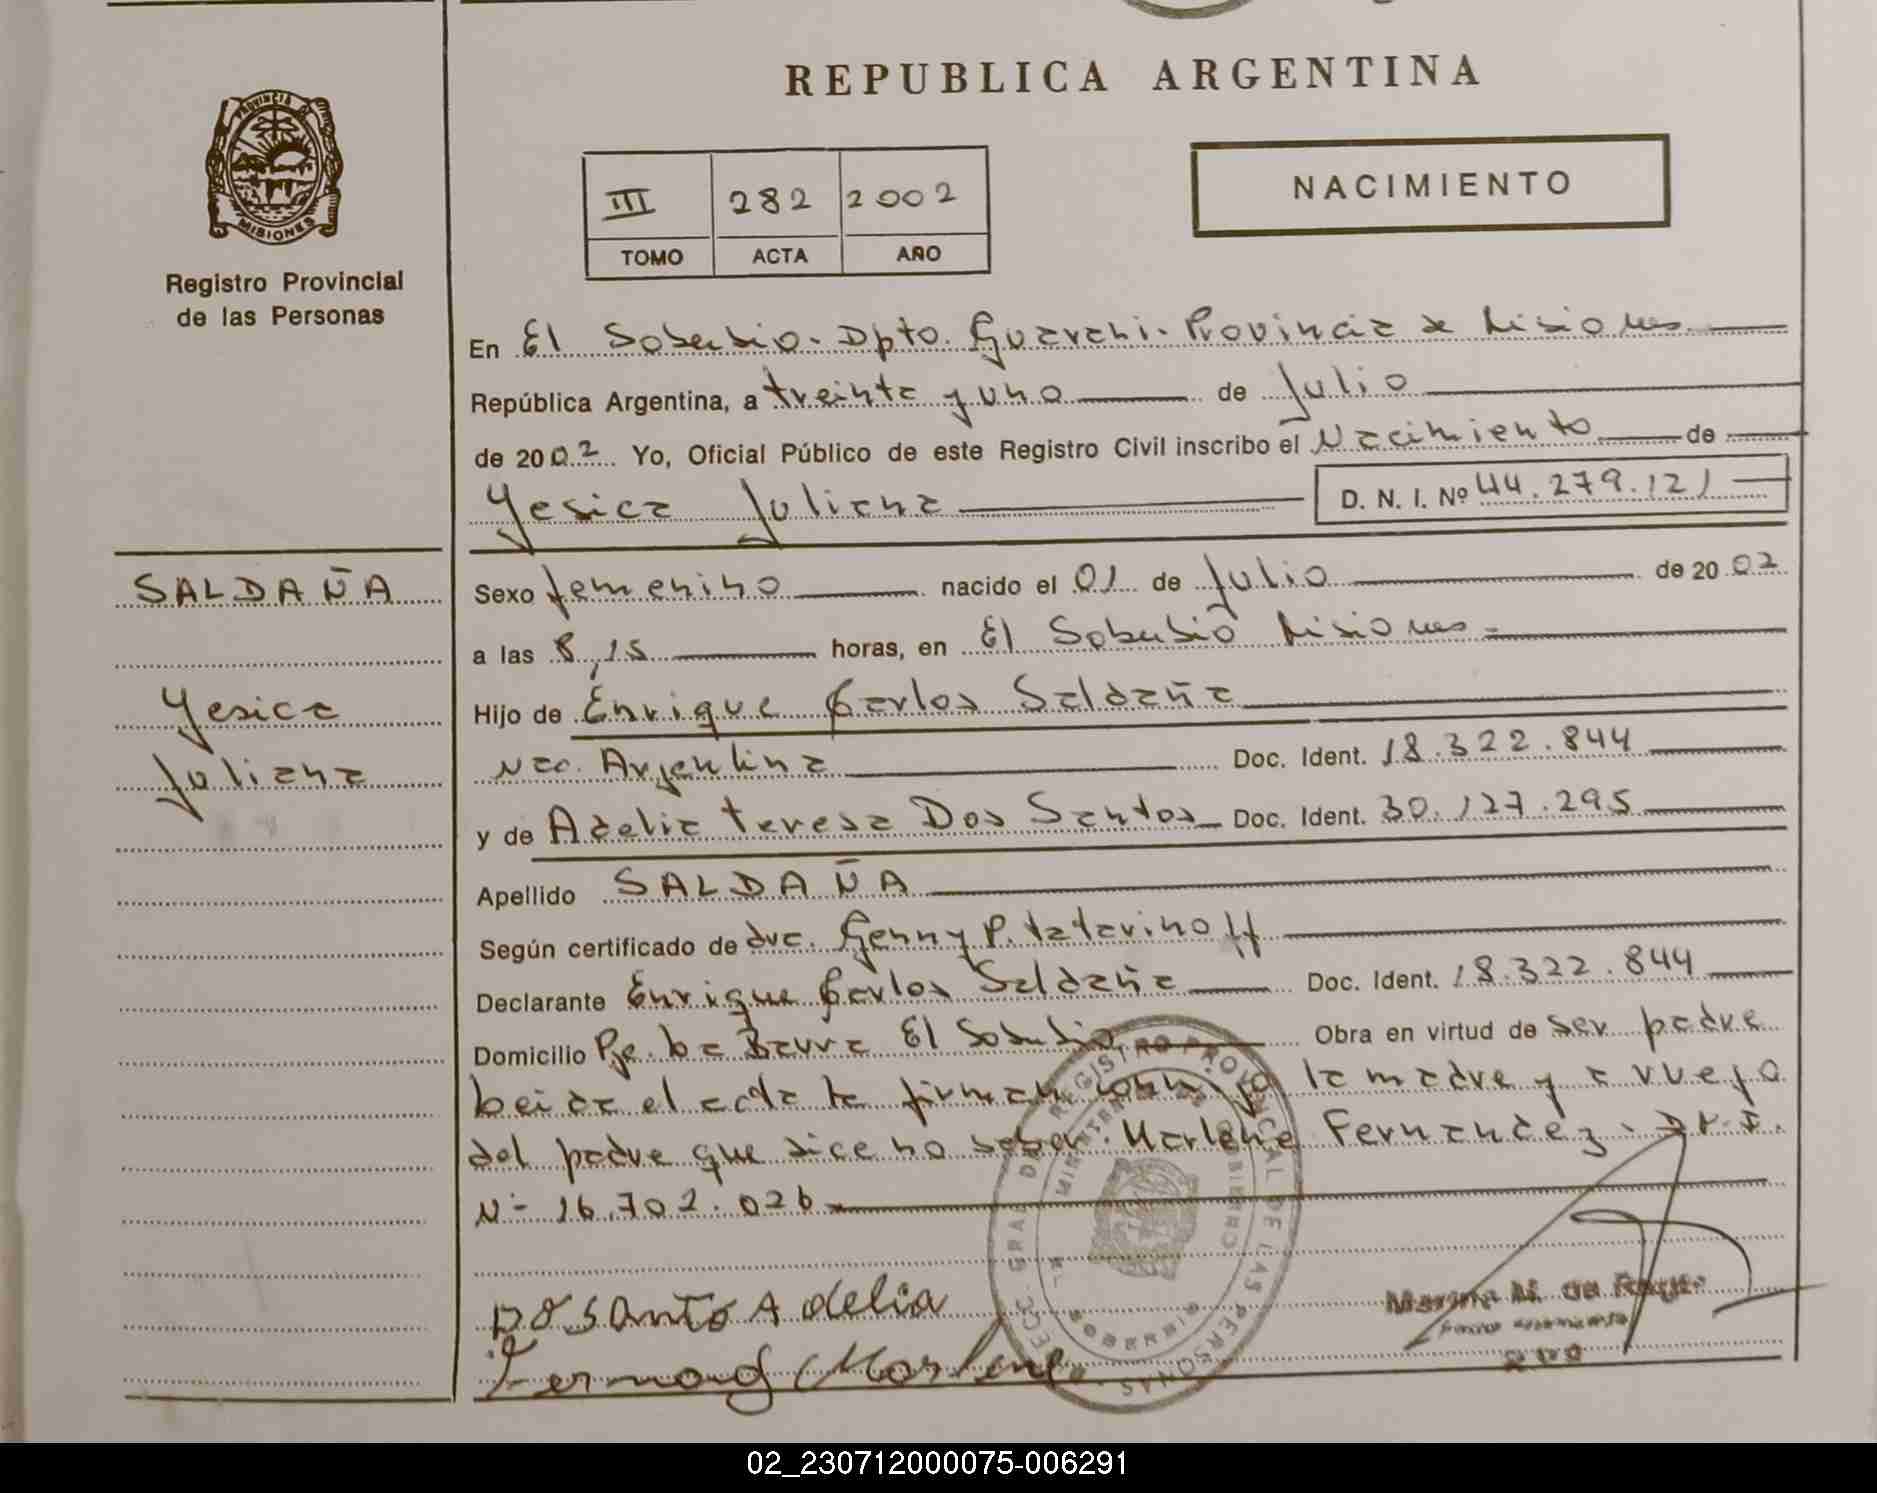 REPUBLICA ARGENTINA
PROVINCIA DE
MISIONES
Registro Provincial
de las Personas
III 282 2002
TOMO ACTA AÑO
NACIMIENTO
En El Soberbio - Dpto. Guarani - Provincia de Misiones
República Argentina, a treinta y uno de Julio
de 2002 Yo, Oficial Público de este Registro Civil inscribo el Nacimiento de
Yesica Juliana D. N. I. Nº 44.279.121
SALDAÑA
Yesica
Juliana
Sexo femenino nacido el 01 de Julio de 2002
a las 8,15 horas, en El Soberbio Misiones
Hijo de Enrique Carlos Saldaña
Nac. Argentina Doc. Ident. 18.322.844
y de Adelia Teresa Dos Santos Doc. Ident. 30.127.295
Apellido SALDAÑA
Según certificado de dra. Genny P. Tatarinoff
Declarante Enrique Carlos Saldaña Doc. Ident. 18.322.844
Domicilio Pje. La Barra El Soberbio Obra en virtud de ser padre
Leida el acta la firman conmigo la madre y a ruego
del padre que dice no saber. Marlene Fernandez - D.N.I.
Nº 16.702.026
DOSANTO Adelia
Marlene
REGISTRO PROVINCIAL DE LAS PERSONAS
SOBERBIO
02_230712000075-006291